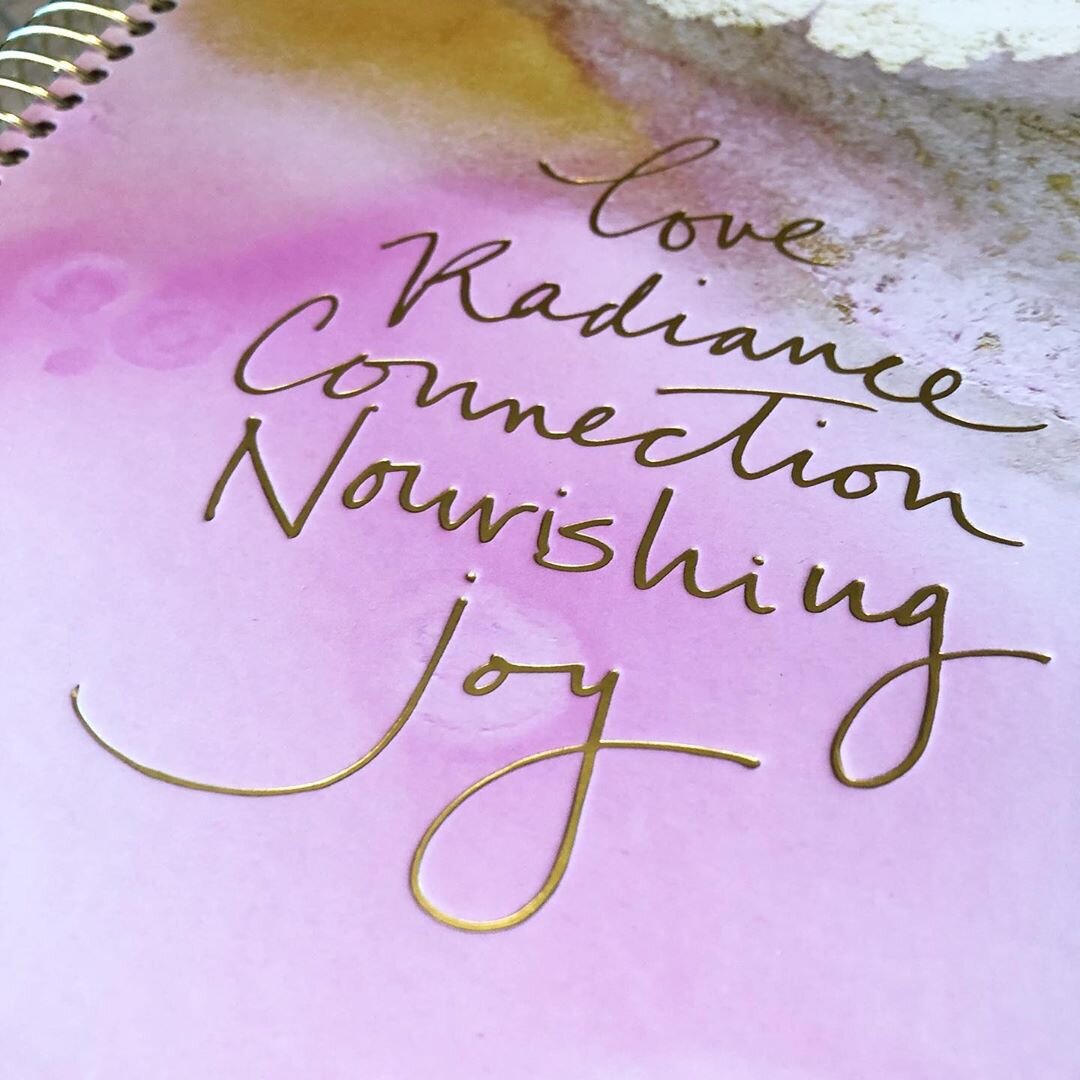 love
Radiance
Connection
Nourishing
joy